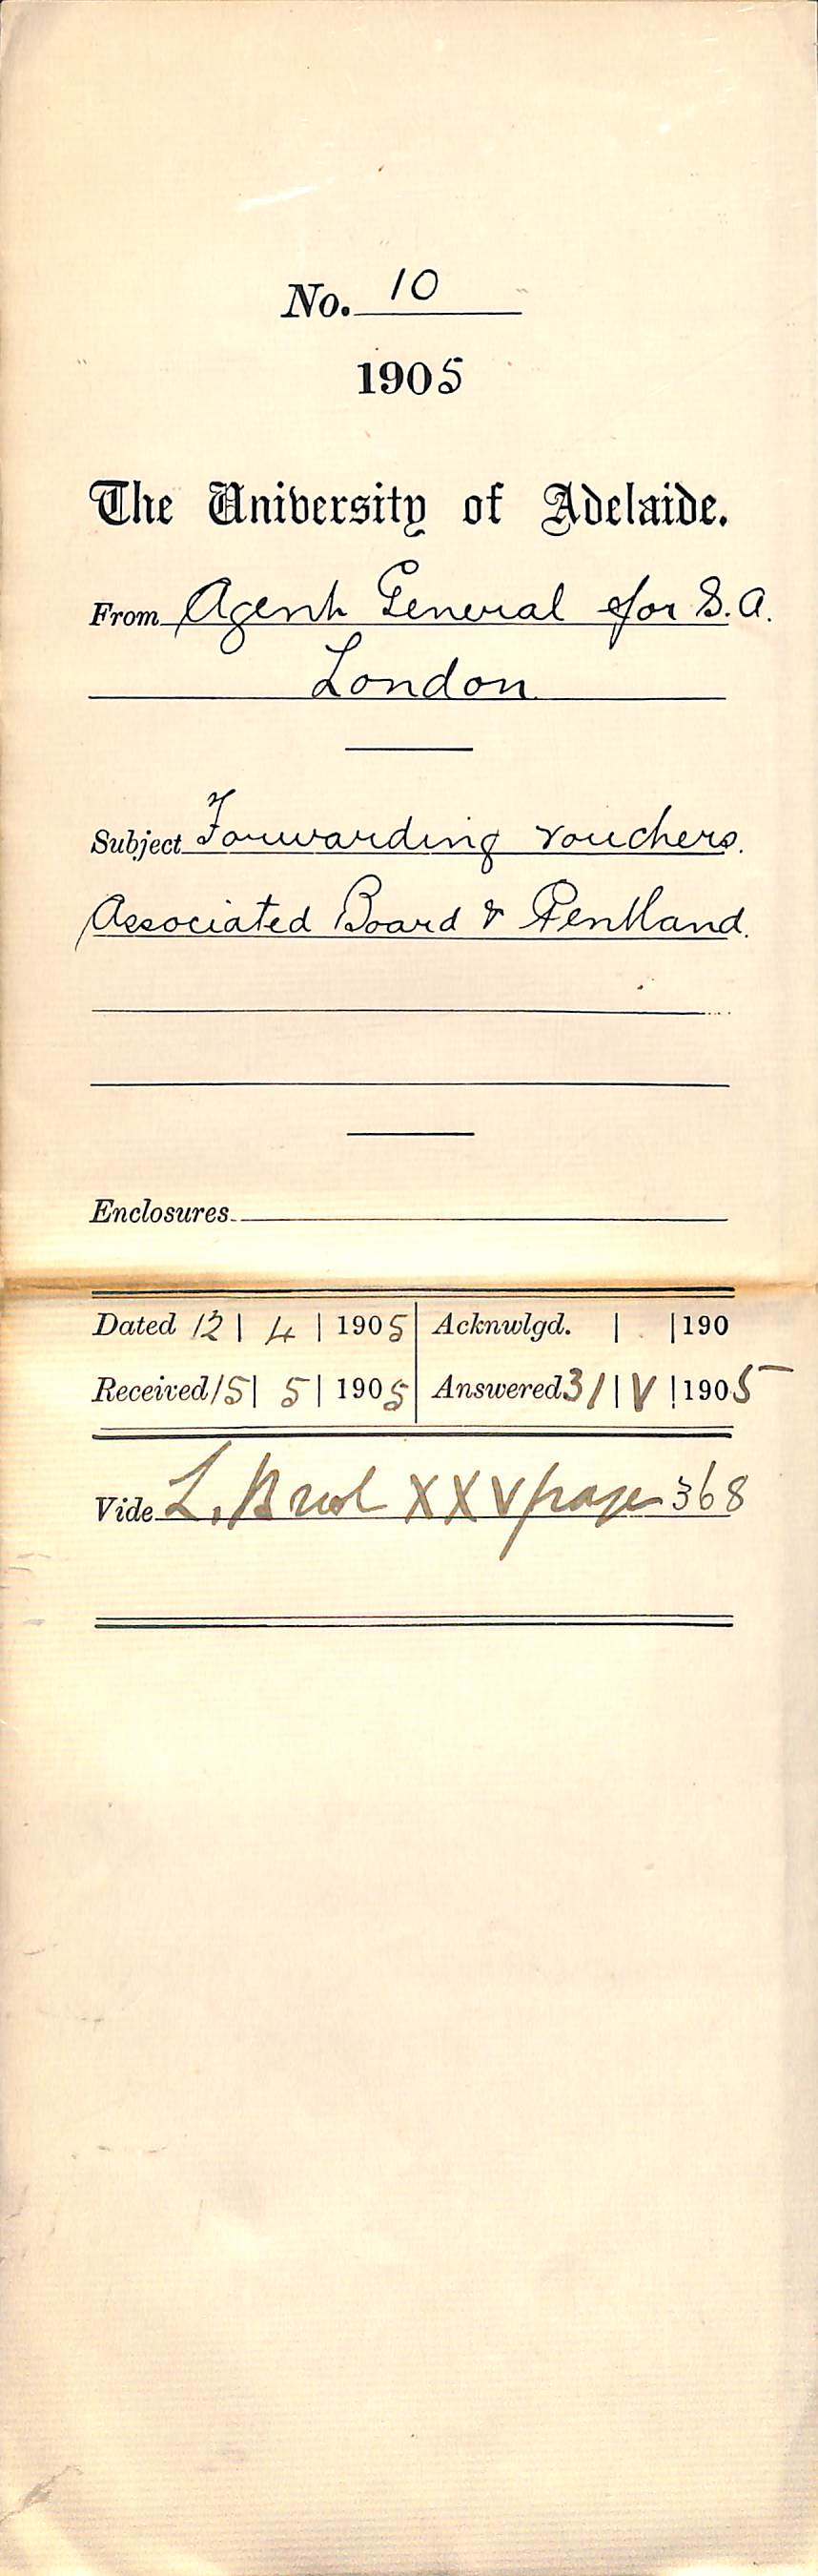 No. 10
1905
The University of Adelaide.
From Agent General for S.A.
London
Subject Forwarding vouchers.
Associated Board & Pentland.
Enclosures
Dated 12 | 4 | 1905 Acknwlgd. | | 190
Received 15 | 5 | 1905 Answered 31 | V | 1905
Vide L. XXV page 368